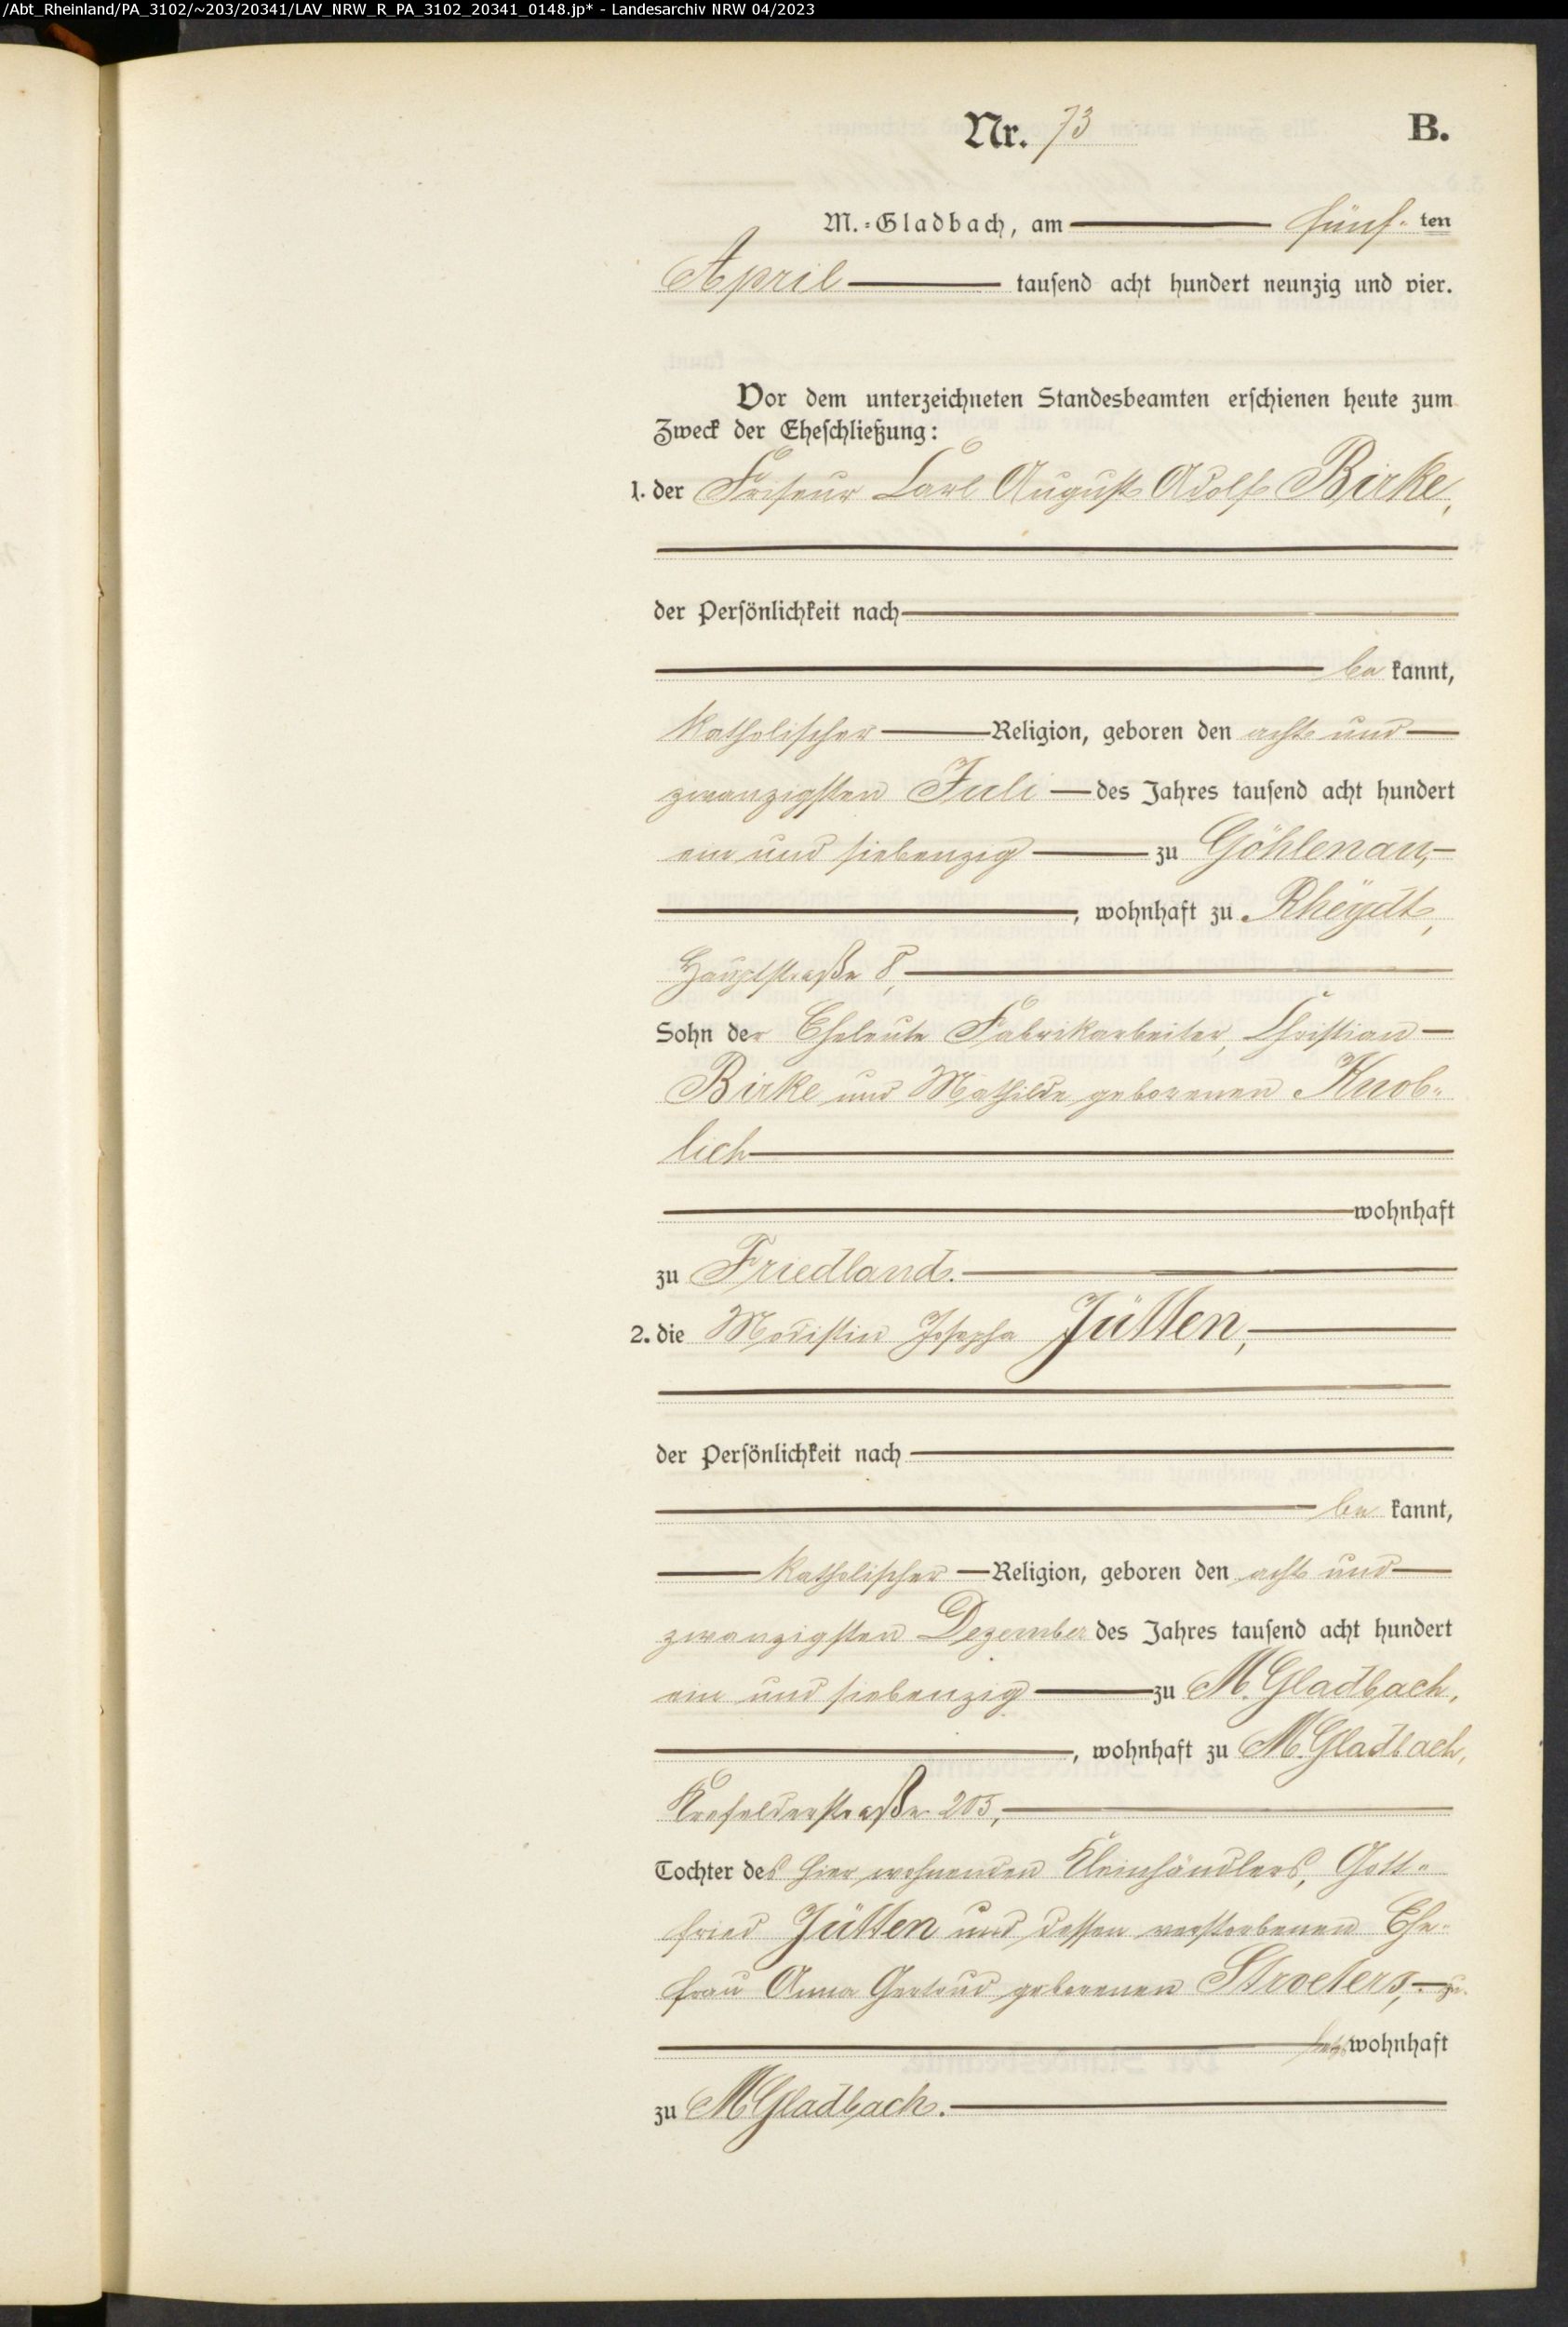 /Abt_Rheinland/PA_3102/~203/20341/LAV_NRW_R_PA_3102_20341_0148.jp* - Landesarchiv NRW 04/2023
Nr. 73 B.
M.-Gladbach, am fünf-ten
April tausend acht hundert neunzig und vier.
Vor dem unterzeichneten Standesbeamten erschienen heute zum
Zweck der Eheschließung:
1. der Friseur Carl August Adolf Birke,
der Persönlichkeit nach
be kannt,
katholischer Religion, geboren den acht und
zwanzigsten Juli des Jahres tausend acht hundert
ein und siebenzig zu Göhlenau,
, wohnhaft zu Rheydt,
Hauptstraße 8,
Sohn der Eheleute Fabrikarbeiter, Christian
Birke und Mathilde geborenen Knob-
lich
wohnhaft
zu Friedland.
2. die Modistin Josepha Jütten,
der Persönlichkeit nach
be kannt,
katholischer Religion, geboren den acht und
zwanzigsten Dezember des Jahres tausend acht hundert
ein und siebenzig zu M.Gladbach,
, wohnhaft zu M.Gladbach,
Krefelderstraße 205,
Tochter des hier wohnenden Kleinhändlers, Gott-
fried Jütten und dessen verstorbenen Ehe-
frau Anna Gertrud geborenen Stroeters, zu-
letzt wohnhaft
zu MGladbach.